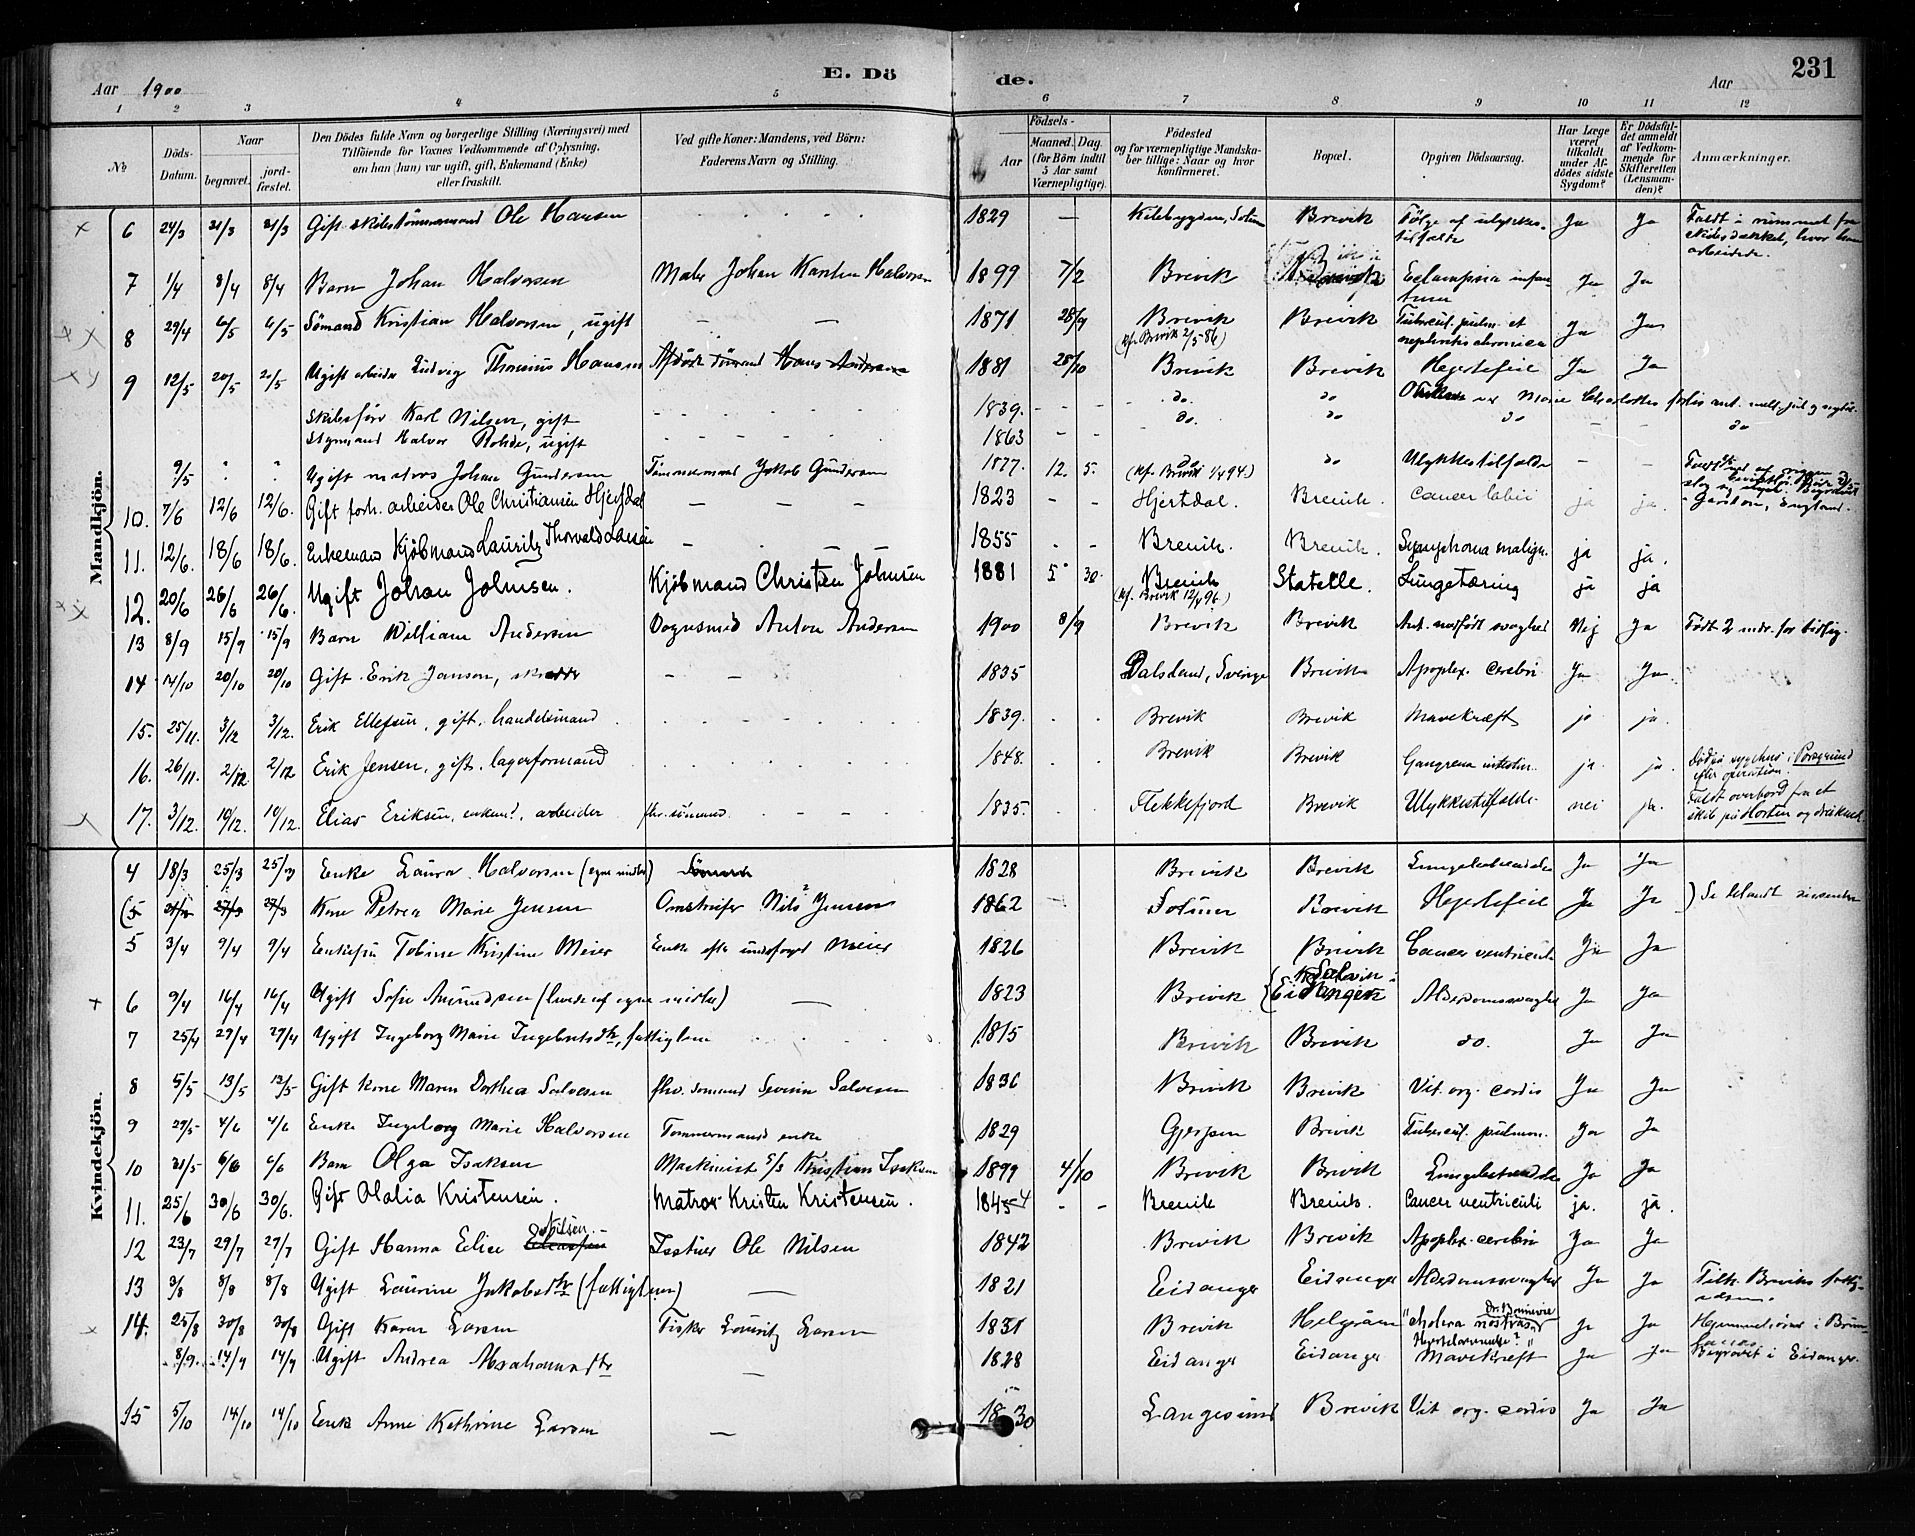 E. Dö de.
231
Aar 1900
Aar
1 2 3 4 5 6 7 8 9 10 11 12
No
Döds-Datum.
Naar
begravet.
jord-fæstet.
Den Dödes fulde Navn og borgerlige Stilling (Næringsvei) med
Tilföiende for Voxnes Vedkommende af Oplysning,
om han (hun) var ugift, gift, Enkemand (Enke)
eller fraskilt.
Ved gifte Koner: Mandens, ved Börn:
Faderens Navn og Stilling.
Födsels-
Aar
Maaned. Dag.
(for Börn indtil
5 Aar samt
Værnepligtige).
Födested
og for værnepligtige Mandska-
ber tillige: Naar og hvor
konfirmeret.
Bopæl.
Opgiven Dödsaarsag.
Har Læge
været
tilkaldt
under Af-
dödes sidste
Sygdom?
Er Dödsfal-
det anmeldt
af Vedkom-
mende for
Skifteretten
(Lensman-
den)?
Anmærkninger.
Mandkjön.
6 24/3 31/3 31/3 Gift skibstömmermand Ole Hansen 1829 — Brevik Fölge af ulykkes-tilfælde Ja Ja Faldt i rummet fra skibsdækket, hvor han arbeidede.
7 1/4 8/4 8/4 Barn Johan Halvorsen Johan Karsten Halvorsen 1899 7/2 Brevik Eclampsia infantum Ja Ja
8 29/4 6/5 6/5 Sömand Kristian Halvorsen, ugift — — 1871 28/9 Brevik (kf. Brevik 2/5-86) Brevik Tubercul. pulm. et nephritis chronica Ja Ja
9 12/5 20/5 20/5 Ugift arbeider Ludvig Thomius Hansen Afdöde sömand Hans Andersen 1881 28/10 Brevik Brevik Hjertefeil Ja Ja
Skibsförer Karl Nilsen, gift 1839. do. do
Styrmand Halvor Rohde, ugift 1863 do. do do do
9/5 " " Ugift matros Johan Gundersen Tömmermand Jakob Gundersen 1877. 12. 5. do (kf. Brevik 1/4 94.) do Ulykkestilfælde — — Garston, England.
10. 7/6 12/6 12/6. Gift forh. arbeider Ole Christiansen Hjertdal — — 1823 Hjertdal. Brevik. Cancer labii ja ja.
11. 12/6. 18/6 18/6. Enkemand Kjöbmand Lauritz Thorvald Larsen — — 1855 Brevik. Brevik. Lymphoma malign. ja ja.
12. 20/6 26/6 26/6. Ugift Johan Johnsen. Kjöbmand Christen Johnsen 1881 5 30. Brevik (kf. Brevik 12/4 96.) Statelle. Lungetæring ja ja
13 8/9 15/9 15/9 Barn William Andersen Vognsmed Anton Andersen 1900 8/9 Brevik Brevik Ant. medfödt svaghed Nej Ja Födt 2 mdr. for tidlig.
14 14/10 20/10 20/10 Gift Erik Janson, — — 1835 Dalsland, Sverige Brevik Apoplex. cerebri Ja Ja
15. 25/11. 3/12 3/12. Erik Ellefsen, gift, handelsmand 1839. Brevik Brevik Mavekræft ja ja.
16. 26/11. 2/12. 2/12 Erik Jensen, gift, lagerformand 1848. Brevik Brevik Gangrena intestin. ja ja. Död på sygehus i Porsgrund efter operation.
17. 3/12. 10/12. 10/12. Elias Eriksen, enkem., arbeider fhv. sömand. 1835. Flekkefjord Brevik Ulykkestilfælde. nei ja. Faldt overbord fra et skib på Horten og druknede.
Kvindekjön.
4 18/3 25/3 25/3 Enke Laura Halvorsen (egne midler) 1828 Brevik Brevik Lungebetændelse Ja Ja
(5 27/3 27/3 Kone Petrea Marie Jensen Nils Jensen 1862 Brevik Hjertefeil Ja Ja
5 3/4 9/4 9/4 Enkefru Tobine Kristine Meier Enke efter Meier 1826 Brevik Brevik Cancer ventriculi Ja Ja
6 9/4 16/4 16/4 Ugift Sofie Amundsen (lever af egne midler) — 1823 Brevik Eidanger Alderdomssvaghed Ja Ja
7 25/4 29/4 29/4 Ugift Ingeborg Marie Ingebretsdtr., fattiglem 1815 Brevik Brevik do. Ja Ja
8 5/5 13/5 13/5 Gift kone Maren Dorthea Salvesen fhv. sömand Severin Salvesen 1836 Brevik Brevik Vit. org. cordis Ja Ja
9 29/5 4/6 4/6 Enke Ingeborg Marie Halvorsen Tömmermand enke 1829 Gjerpen Brevik Tubercul. pulmon. Ja Ja
10 31/5 6/6 6/6 Barn Olga Isaksen Maskinist Kristian Isaksen 1899 4/10 Brevik Brevik Lungebetændelse Ja Ja
11. 25/6 30/6 30/6. Gift Olalia Kristensen. Matros Kristen Kristensen. 1845 Brevik Brevik. Cancer ventriculi ja. ja.
12 23/7 29/7 29/7 Gift Hanna Elise Nilsen Ole Nilsen 1842 Brevik Brevik Apoplex. cerebri Ja Ja
13 3/8 8/8 8/8 Ugift Laurine Jakobsdtr. (fattiglem) — 1821 Eidanger Eidanger Alderdomssvaghed Ja Ja
14. 25/8 30/8 30/8 Gift Karen Larsen Fisker Lauritz Larsen 1831 Brevik Helgeraaen "cholera nostras" Ja Ja
8/9. 14/9 14/9 Ugift Andrea Abrahamsdtr — 1828 Eidanger Eidanger Mavekræft Ja Ja Begravet i Eidanger.
15 5/10 14/10 14/10 Enke Anne Kathrine Larsen — 1830 Langesund Brevik Vit. org. cordis Ja Ja